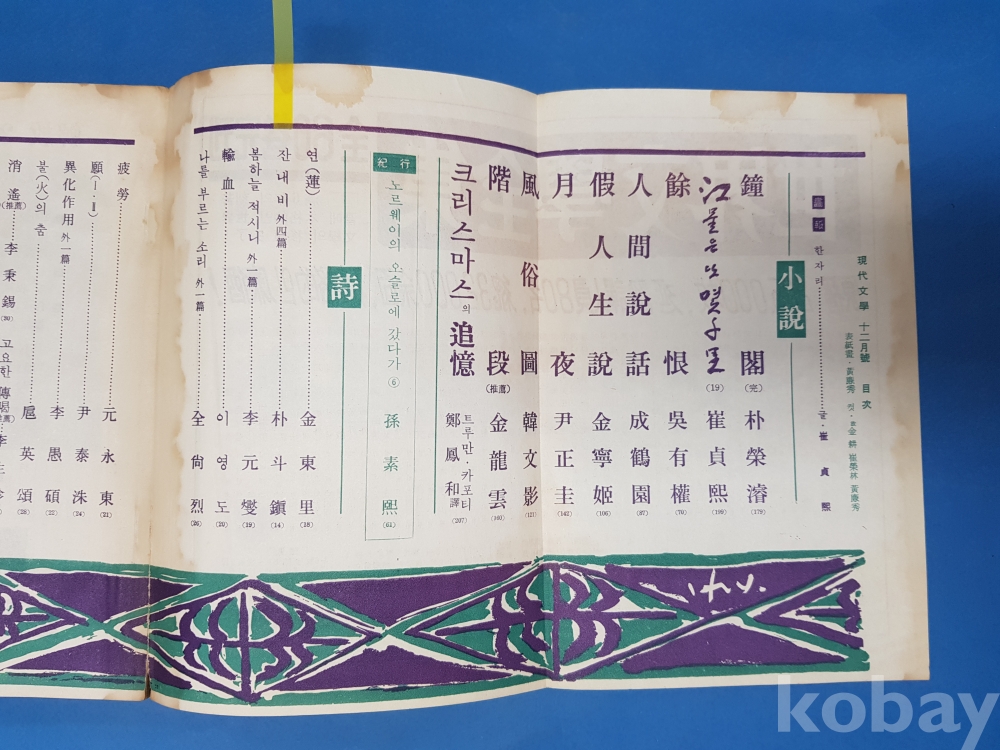 現代文學 十二月號 目次
한자리 글·崔貞熙
小說
鐘閣 (完) 朴榮濬 (179)
江물은 또 몇千里 (19) 崔貞熙 (199)
餘恨 吳有權 (70)
人間說話 成鶴園 (87)
假人生說 金寧姬 (106)
月夜 尹正圭 (142)
風俗圖 韓文影 (121)
階段 (推薦) 金龍雲 (160)
크리스마스의 追憶 트루만·카포티 鄭鳳和譯 (207)
紀行 노르웨이의 오슬로에 갔다가 ⑥ 孫素熙 (61)
詩
연(蓮) 金東里 (18)
잔내비 外四篇 朴斗鎭 (14)
봄하늘 적시니 外一篇 李元燮 (19)
輸血 이영도 (20)
나를 부르는 소리 外一篇 全尙烈 (26)
疲勞 元永東 (21)
願(Ⅰ-Ⅱ) 尹泰洙 (24)
異化作用 外一篇 李愚碩 (22)
불(火)의 춤 扈英頌 (28)
消遙 (推薦) 李秉錫 (30)
고요한
kobay